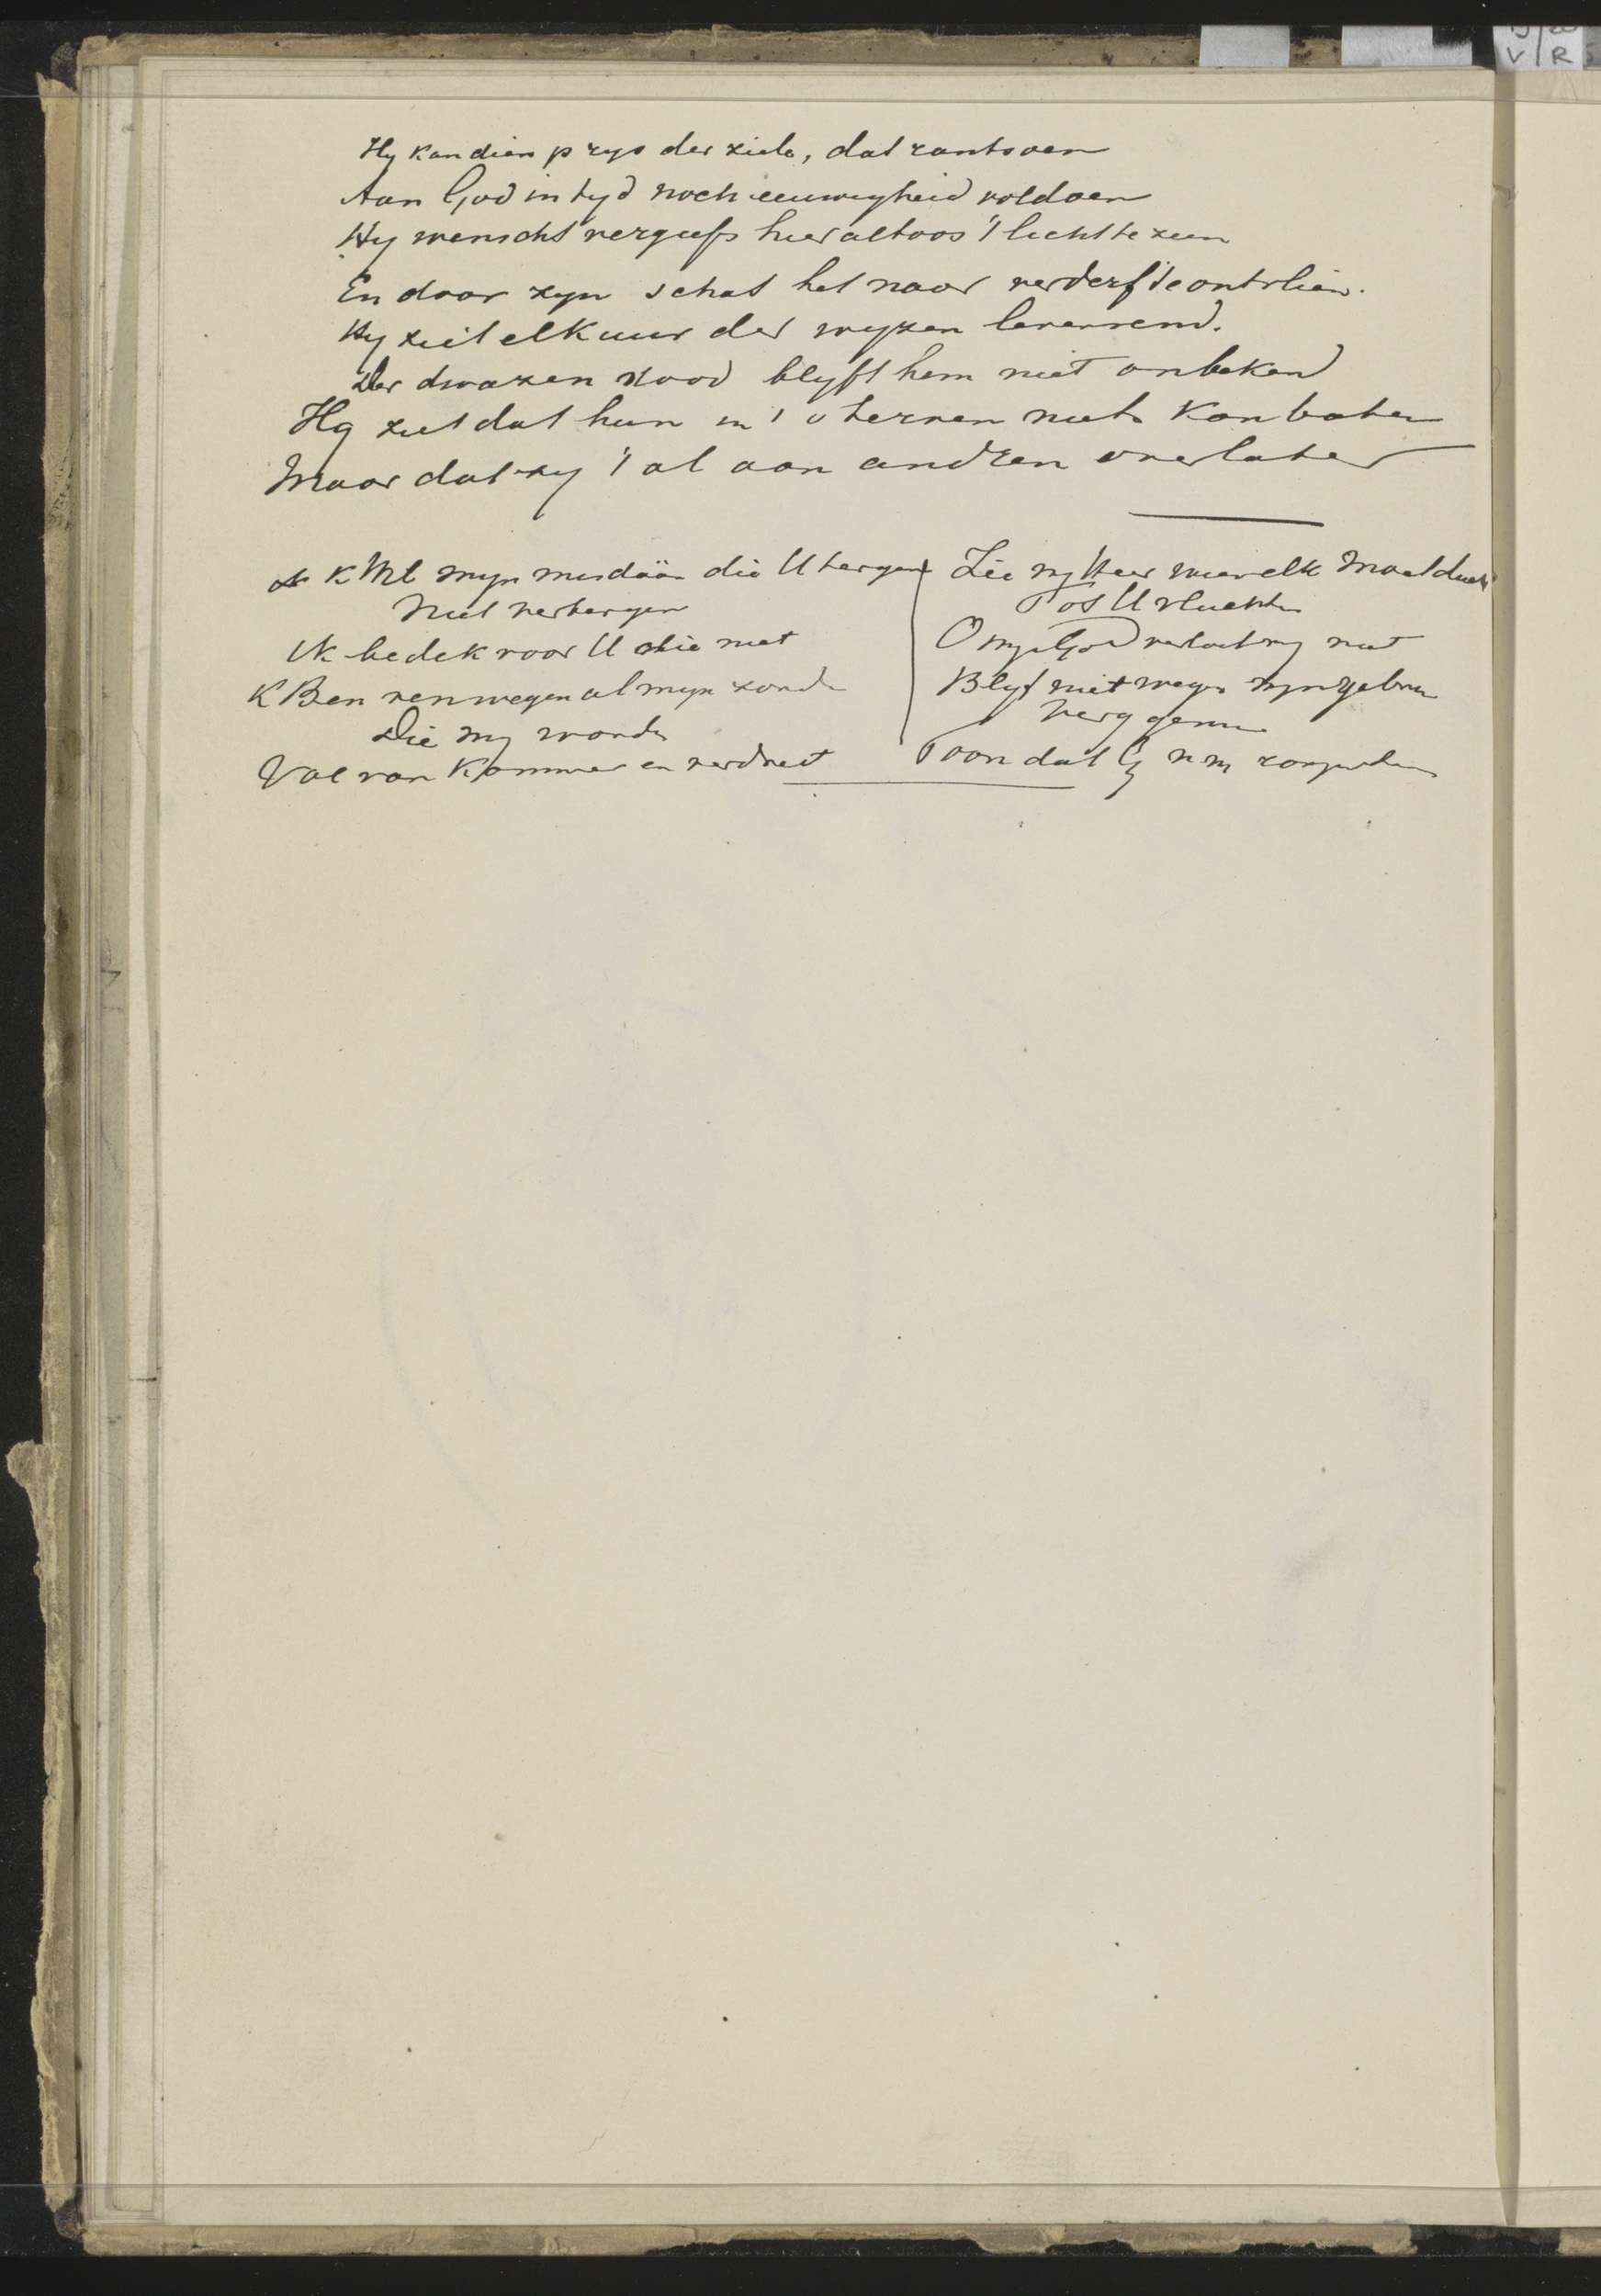 Hy kan dien prys der ziele, dat rantsoen
Aan God in tyd noch eeuwigheid voldoen
Hy wenscht vergeefs hier altoos 't licht te zien
En door zyn schat het naar verderf te ontvliên.
Hy ziet elk uur der wyzen levensend.
Der dwazen dood blyft hem niet onbekend
Hy ziet dat hun in 't sterven niets kan baten
Maar dat zy 't al aan andren overlaten
K Wil myn misdaân die U tergen
Niet verbergen
Ik bedek voor U die niet
K Ben van wegen al myn zonden
Die my wonden
Vol van kommer en verdriet
Zie my Heer wien elk moet duchten
Tot U vluchten
O myn God verlaat my niet
Blyf niet wegen myn gebreken
Toon dat Gy
V R